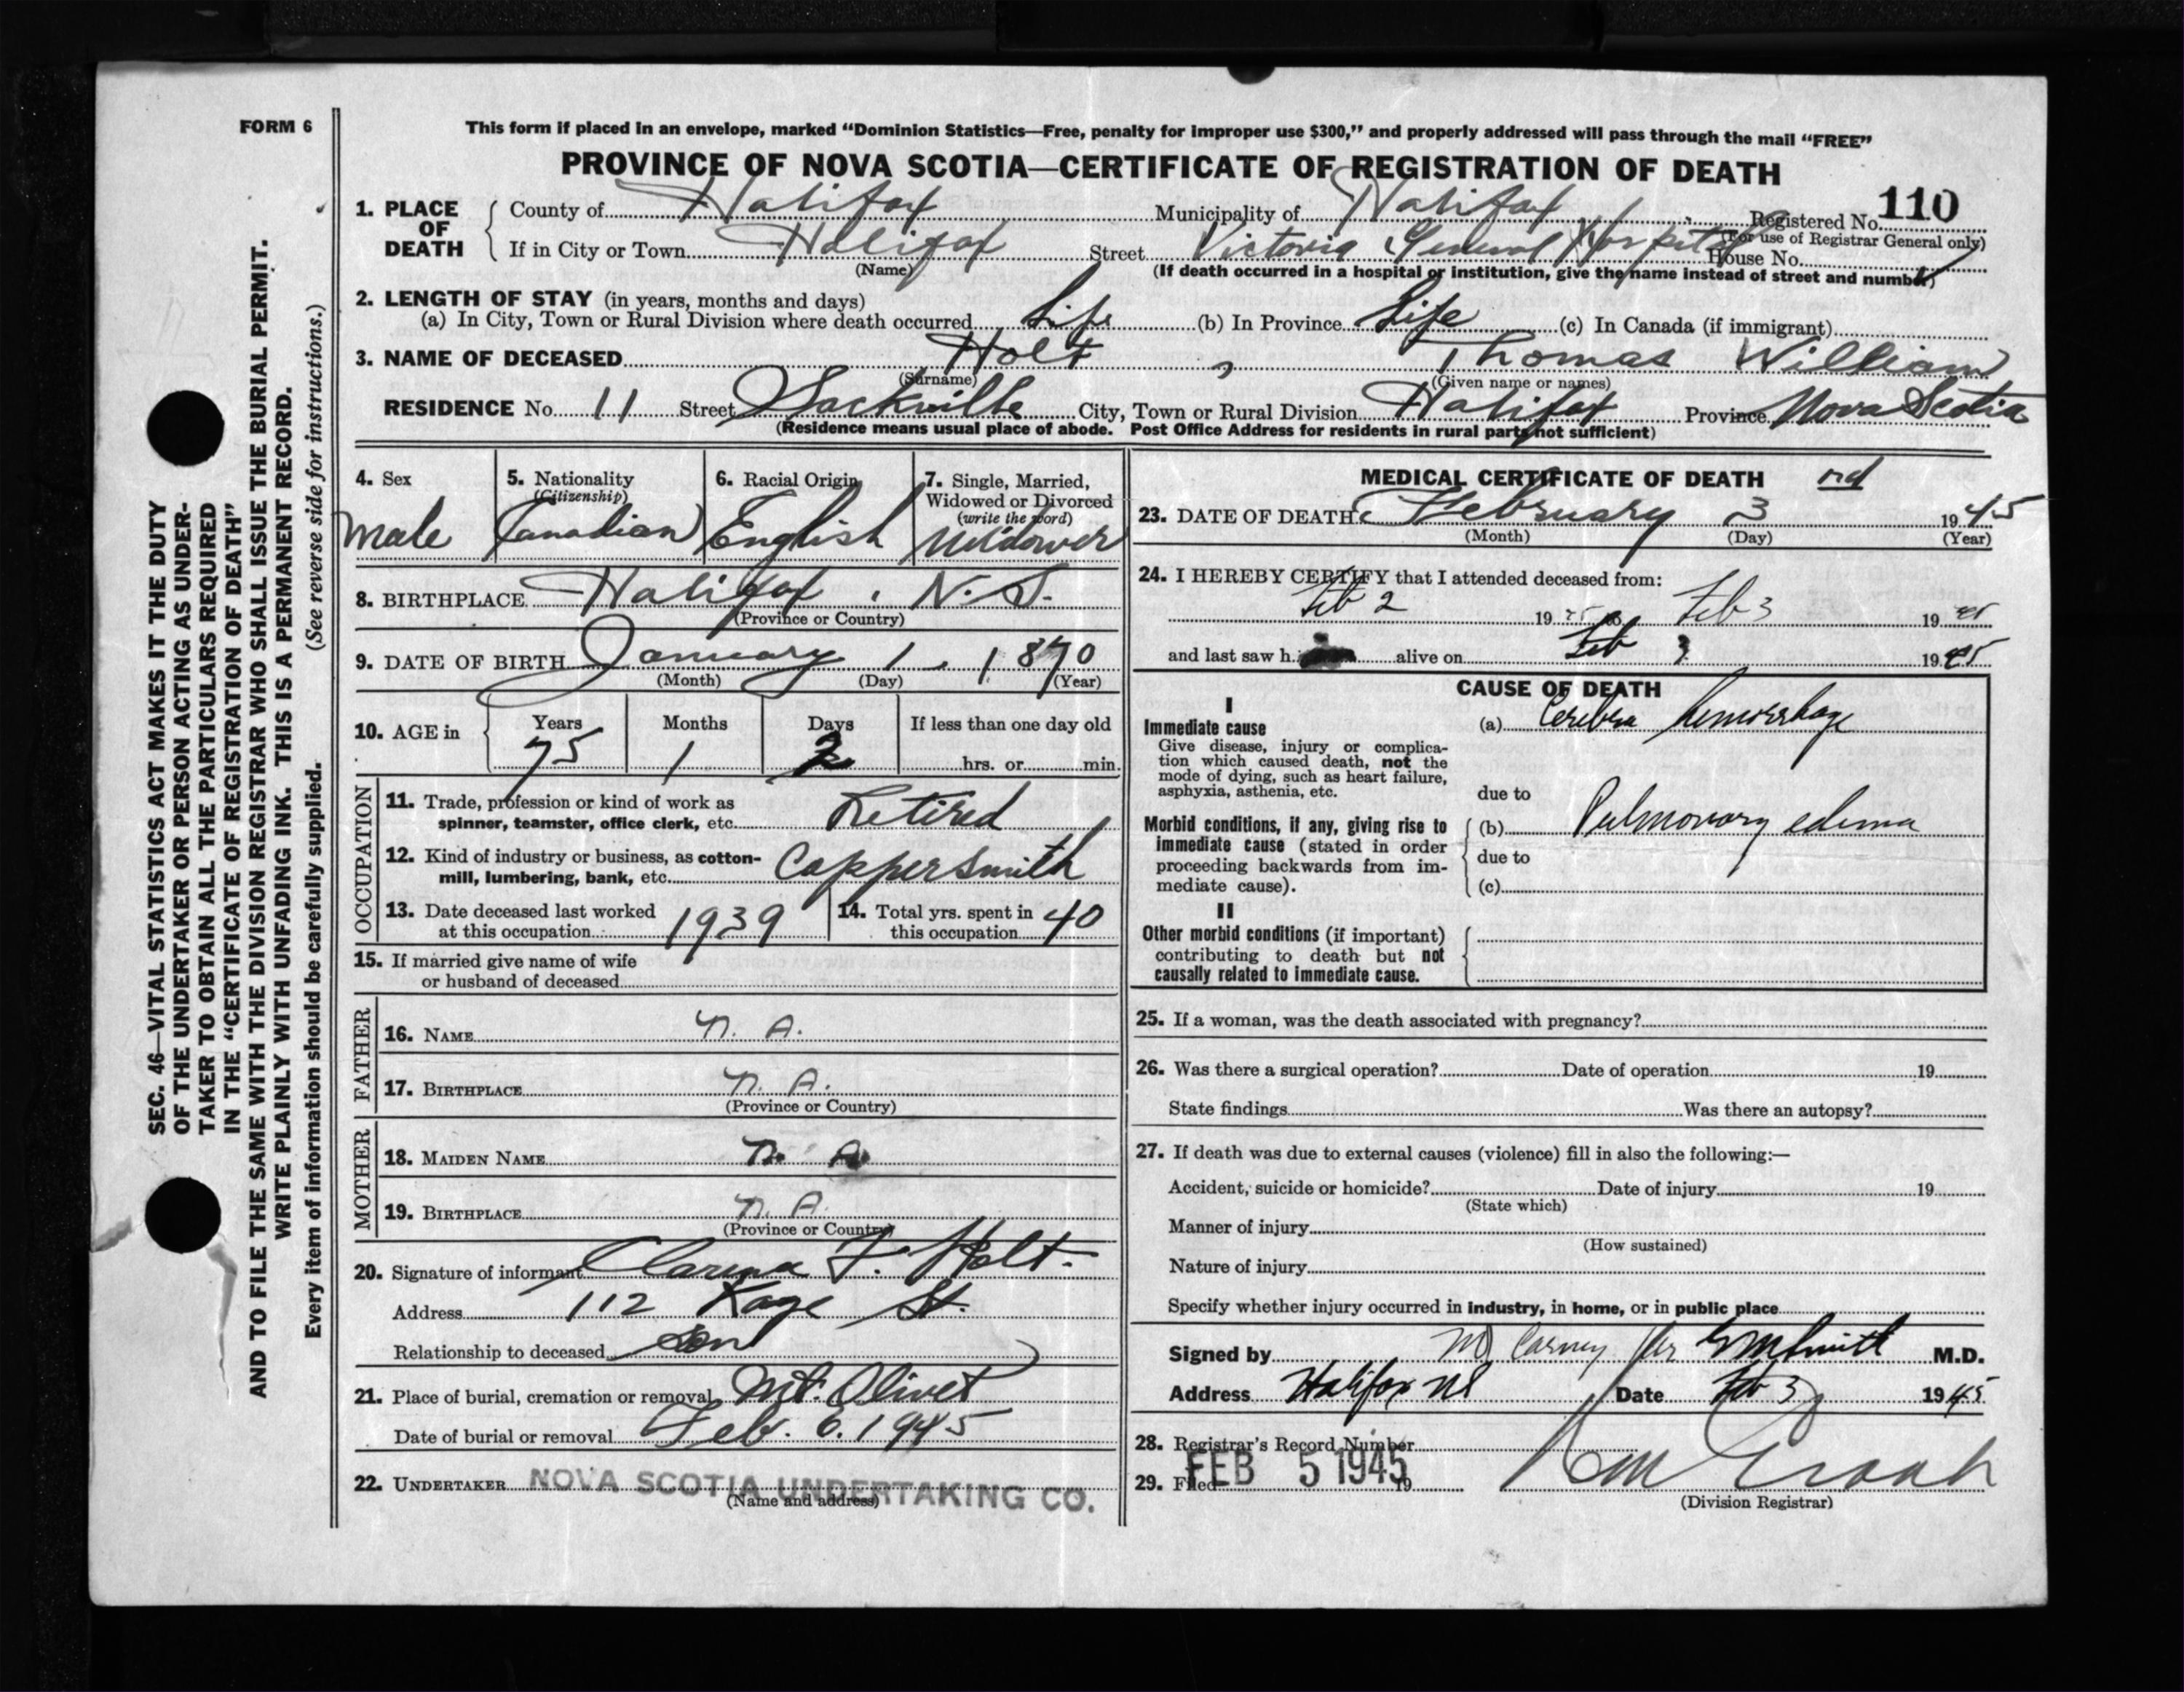 FORM 6
This form if placed in an envelope, marked “Dominion Statistics—Free, penalty for improper use $300,” and properly addressed will pass through the mail “FREE”
PROVINCE OF NOVA SCOTIA—CERTIFICATE OF REGISTRATION OF DEATH
1. PLACE OF DEATH
County of Halifax Municipality of Halifax Registered No. 110
(For use of Registrar General only)
If in City or Town Halifax Street Victoria General Hospital House No.
(Name) (If death occurred in a hospital or institution, give the name instead of street and number)
2. LENGTH OF STAY (in years, months and days)
(a) In City, Town or Rural Division where death occurred Life (b) In Province Life (c) In Canada (if immigrant)
3. NAME OF DECEASED Holt , Thomas William
(Surname) (Given name or names)
RESIDENCE No. 11 Street Sackville City, Town or Rural Division Halifax Province Nova Scotia
(Residence means usual place of abode. Post Office Address for residents in rural parts not sufficient)
4. Sex
male
5. Nationality
(Citizenship)
Canadian
6. Racial Origin
English
7. Single, Married,
Widowed or Divorced
(write the word)
Widower
8. BIRTHPLACE Halifax, N.S.
(Province or Country)
9. DATE OF BIRTH January 1, 1870
(Month) (Day) (Year)
10. AGE in
Years Months Days If less than one day old
75 1 2 hrs. or min.
OCCUPATION
11. Trade, profession or kind of work as
spinner, teamster, office clerk, etc. Retired
12. Kind of industry or business, as cotton-
mill, lumbering, bank, etc. Coppersmith
13. Date deceased last worked
at this occupation 1939
14. Total yrs. spent in
this occupation 40
15. If married give name of wife
or husband of deceased
FATHER
16. NAME N. A.
17. BIRTHPLACE N. A.
(Province or Country)
MOTHER
18. MAIDEN NAME N. A.
19. BIRTHPLACE N. A.
(Province or Country)
20. Signature of informant F. Holt.
Address 112 Kaye St.
Relationship to deceased son
21. Place of burial, cremation or removal Mt. Olivet
Date of burial or removal Feb. 6. 1945
22. UNDERTAKER NOVA SCOTIA UNDERTAKING CO.
(Name and address)
MEDICAL CERTIFICATE OF DEATH
23. DATE OF DEATH February 3 rd 1945
(Month) (Day) (Year)
24. I HEREBY CERTIFY that I attended deceased from:
Feb 2 1945 to Feb 3 1945
and last saw h alive on Feb 3 1945
CAUSE OF DEATH
I
Immediate cause
Give disease, injury or complica-
tion which caused death, not the
mode of dying, such as heart failure,
asphyxia, asthenia, etc.
(a) Cerebra hemorrhage
due to
Morbid conditions, if any, giving rise to
immediate cause (stated in order
proceeding backwards from im-
mediate cause).
(b) Pulmonary edema
due to
(c)
II
Other morbid conditions (if important)
contributing to death but not
causally related to immediate cause.
25. If a woman, was the death associated with pregnancy?
26. Was there a surgical operation? Date of operation 19
State findings Was there an autopsy?
27. If death was due to external causes (violence) fill in also the following:—
Accident, suicide or homicide? Date of injury 19
(State which)
Manner of injury
(How sustained)
Nature of injury
Specify whether injury occurred in industry, in home, or in public place
Signed by M Carney per M.D.
Address Halifax NS Date Feb 3 1945
28. Registrar's Record Number
29. Filed FEB 5 1945 19
(Division Registrar)
SEC. 46—VITAL STATISTICS ACT MAKES IT THE DUTY
OF THE UNDERTAKER OR PERSON ACTING AS UNDER-
TAKER TO OBTAIN ALL THE PARTICULARS REQUIRED
IN THE “CERTIFICATE OF REGISTRATION OF DEATH”
AND TO FILE THE SAME WITH THE DIVISION REGISTRAR WHO SHALL ISSUE THE BURIAL PERMIT.
WRITE PLAINLY WITH UNFADING INK. THIS IS A PERMANENT RECORD.
Every item of information should be carefully supplied. (See reverse side for instructions.)